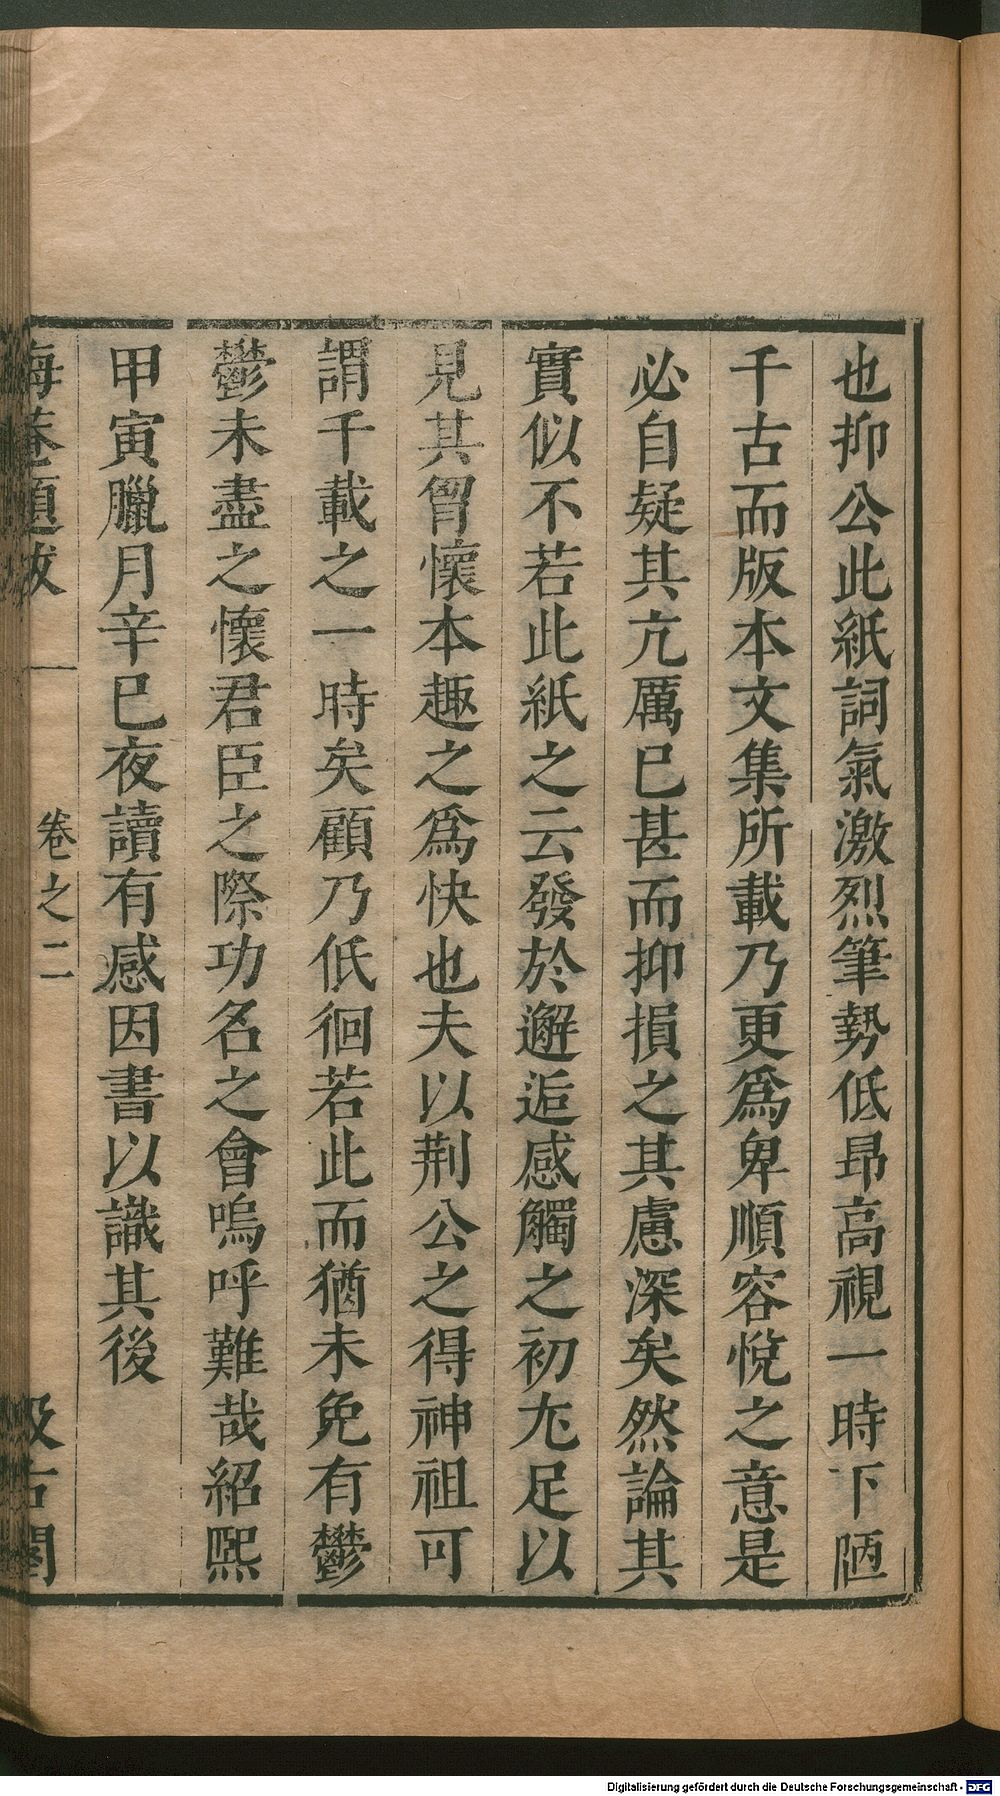 也抑公此紙詞氣激烈筆勢低昂高視一時下陋
千古而版本文集所載乃更爲卑順容悅之意是
必自疑其亢厲已甚而抑損之其慮深矣然論其
實似不若此紙之云發於邂逅感觸之初尤足以
見其胷懷本趣之爲快也夫以荆公之得神祖可
謂千載之一時矣顧乃低徊若此而猶未免有鬱
鬱未盡之懷君臣之際功名之會嗚呼難哉紹熙
甲寅臘月辛巳夜讀有感因書以識其後
海菴題跋 卷之二 汲古閣
Digitalisierung gefördert durch die Deutsche Forschungsgemeinschaft - DFG